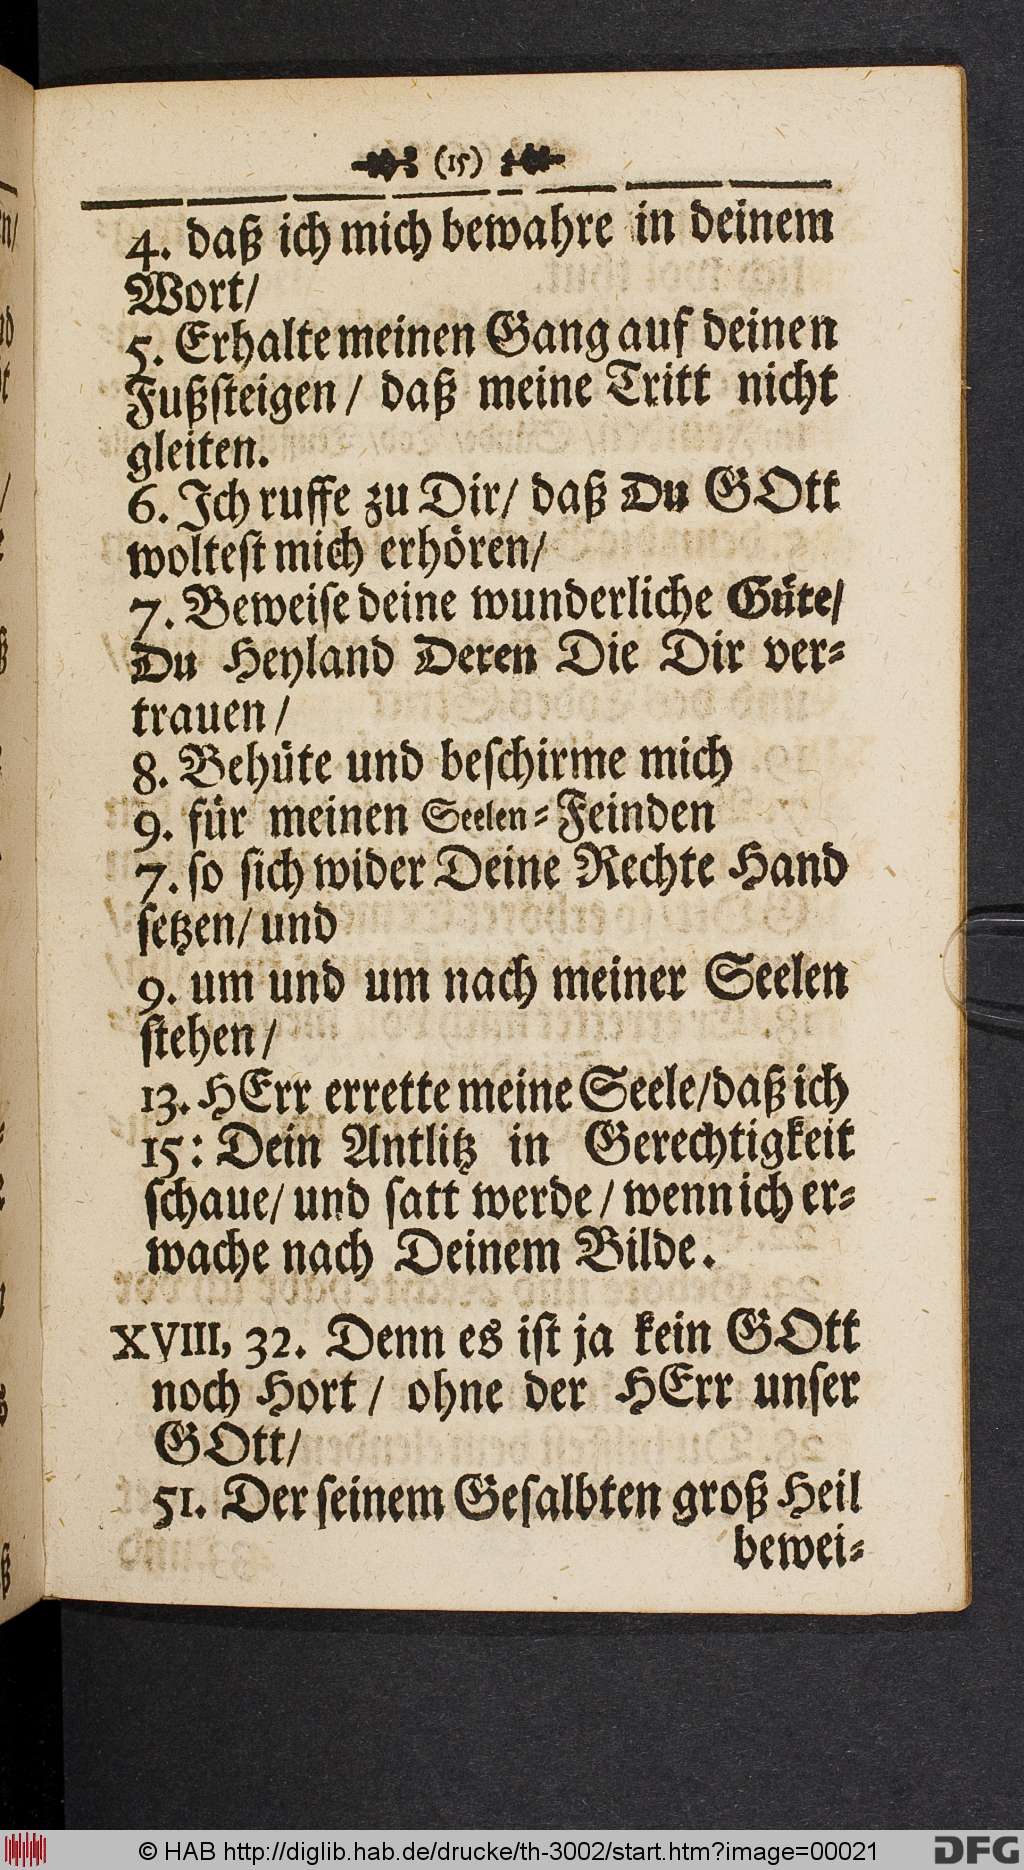 (15)
4. daß ich mich bewahre in deinem
Wort/
5. Erhalte meinen Gang auf deinen
Fußſteigen/ daß meine Tritt nicht
gleiten.
6. Ich ruffe zu Dir/ daß Du GOtt
wolteſt mich erhören/
7. Beweiſe deine wunderliche Güte/
Du Heyland Deren Die Dir ver-
trauen/
8. Behüte und beſchirme mich
9. für meinen Seelen-Feinden
7. ſo ſich wider Deine Rechte Hand
ſetzen/ und
9. um und um nach meiner Seelen
ſtehen/
13. HErr errette meine Seele/ daß ich
15: Dein Antlitz in Gerechtigkeit
ſchaue/ und ſatt werde/ wenn ich er-
wache nach Deinem Bilde.
XVIII, 32. Denn es iſt ja kein GOtt
noch Hort/ ohne der HErr unſer
GOtt/
51. Der ſeinem Geſalbten groß Heil
bewei-
© HAB http://diglib.hab.de/drucke/th-3002/start.htm?image=00021
DFG